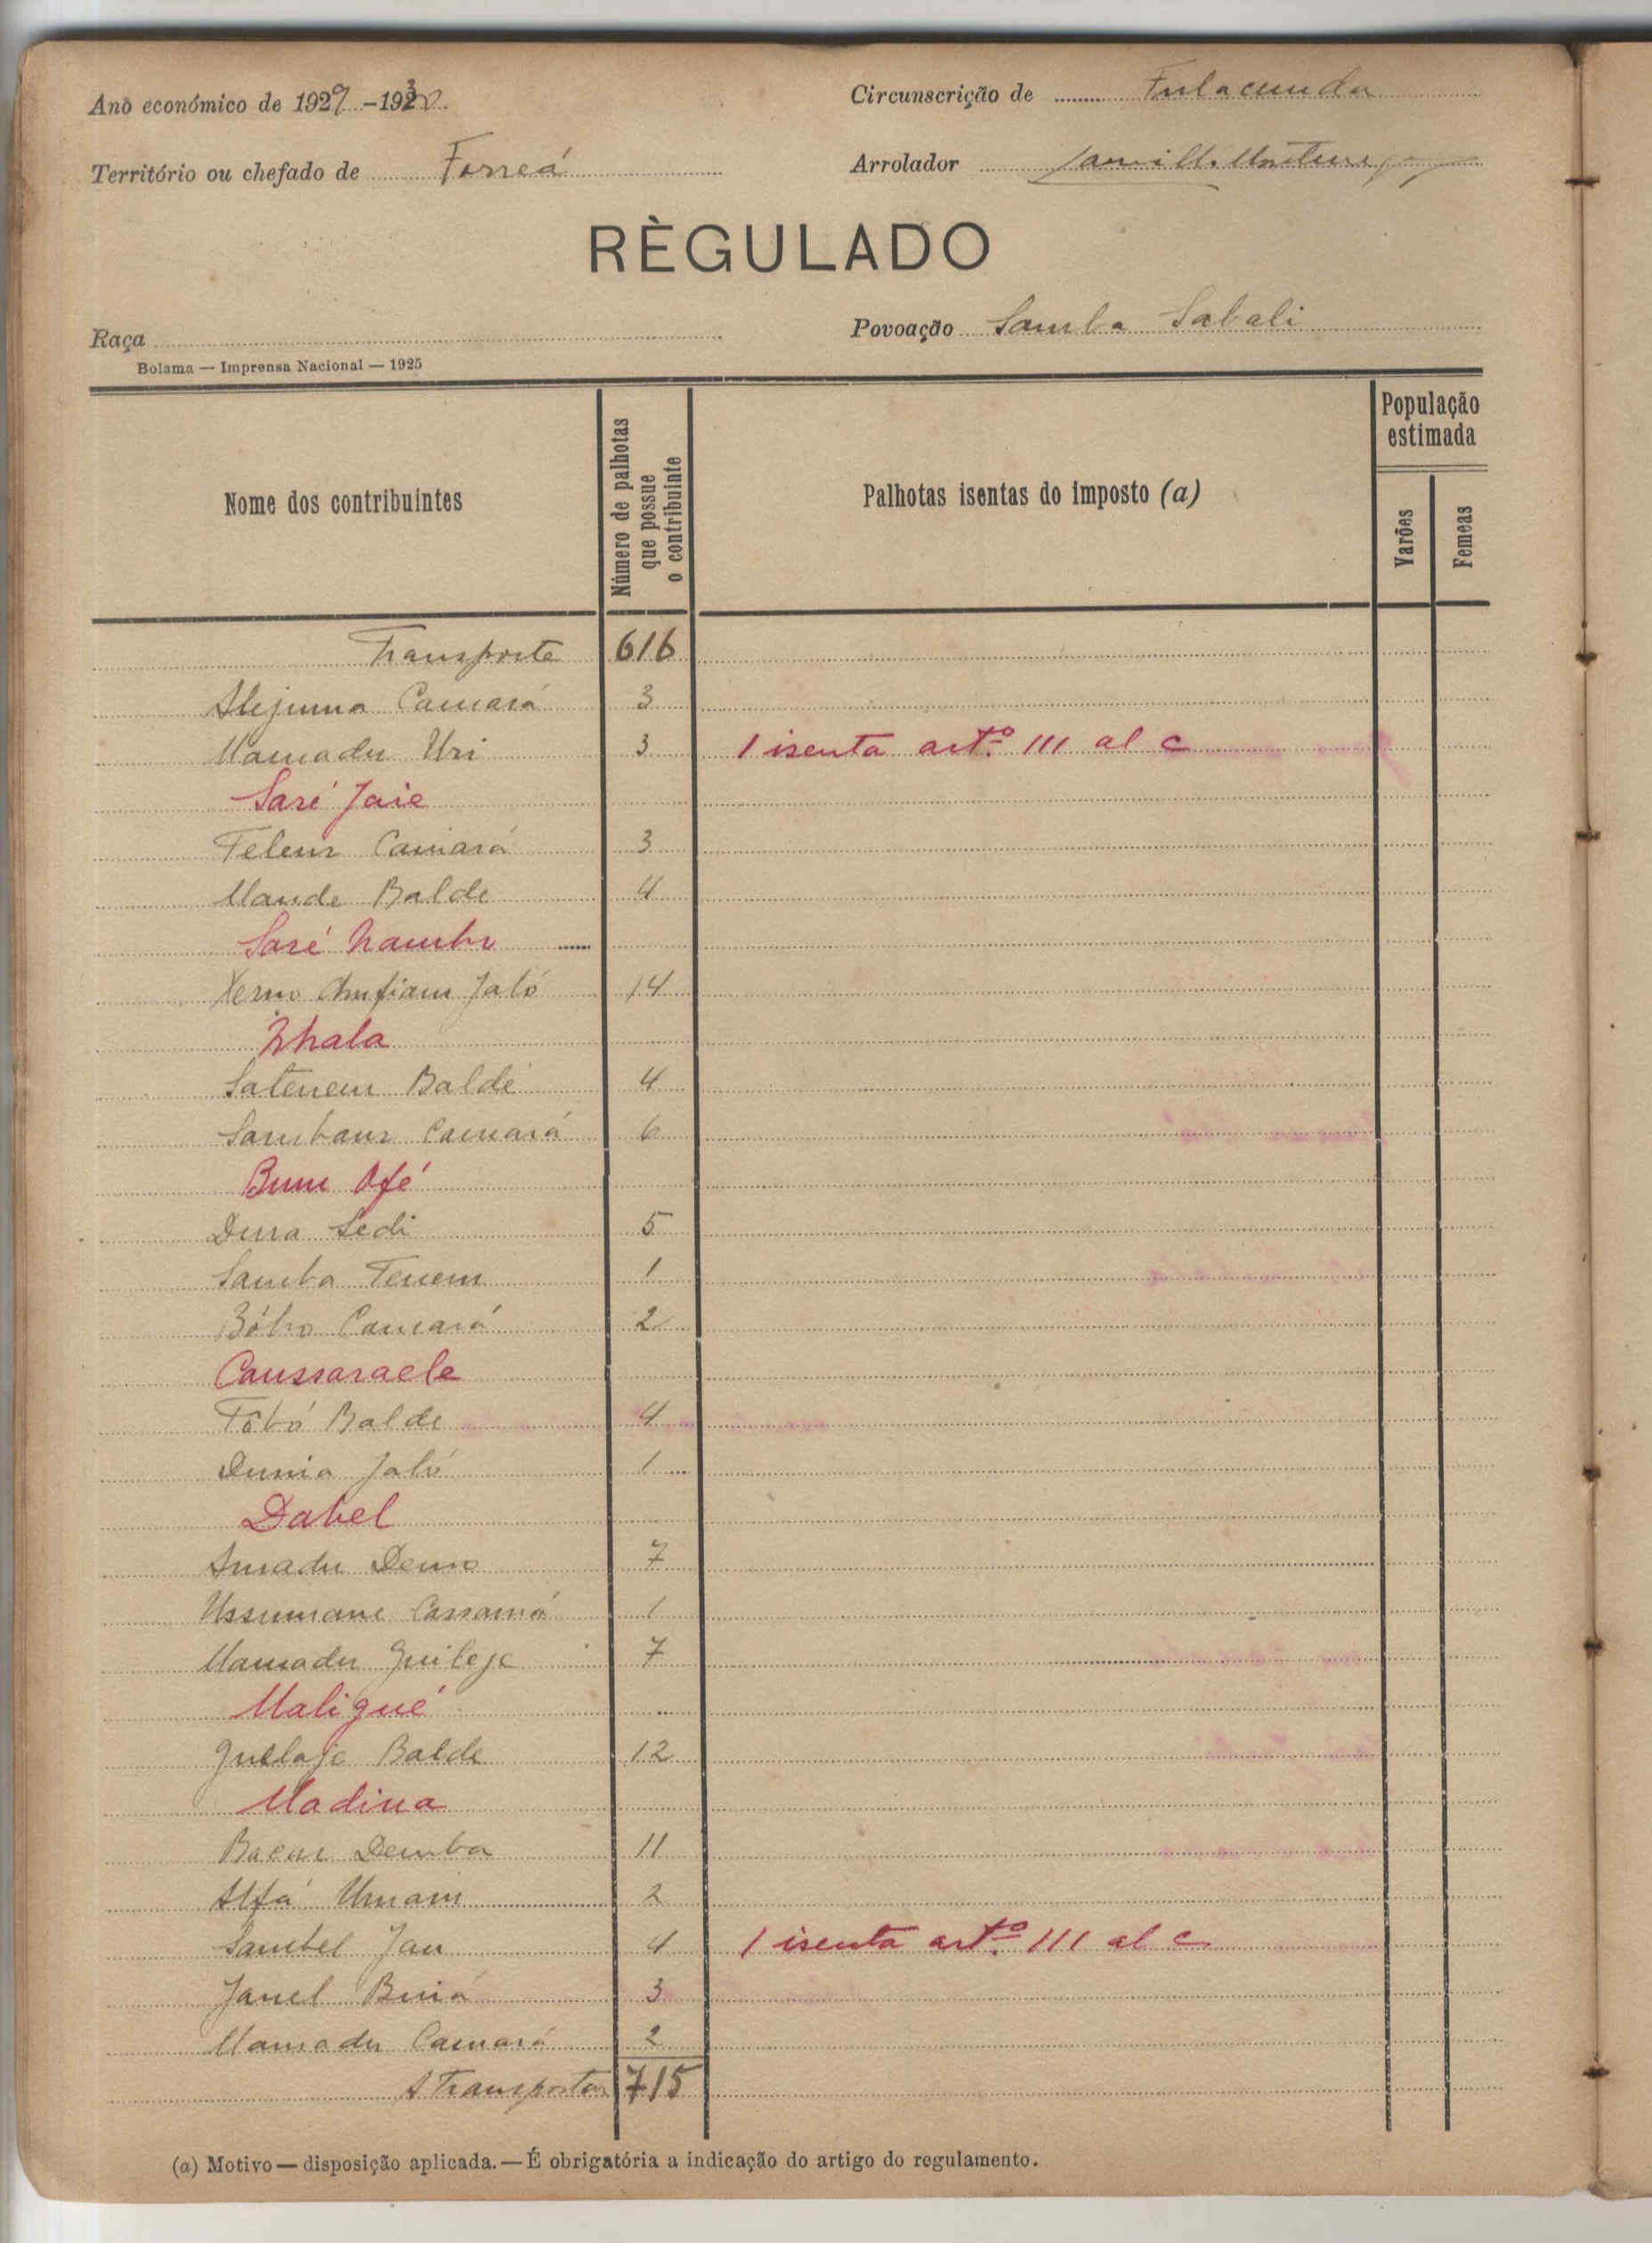 Ano económico de 1929-1930.
Circunscrição de Fulacunda
Território ou chefado de Forreá
Arrolador
RÈGULADO
Raça
Povoação Samba Sabali
Bolama — Imprensa Nacional — 1925
Nome dos contribuintes
Número de palhotas que possue o contribuinte
Palhotas isentas do imposto (a)
População estimada
Varões
Femeas
Transporte 616
Camará 3
Mamadu Uri 3 1 isenta art.º 111 al c
Saré Jaie
Camará 3
Mande Balde 4
Saré
Xerno Jaló 14
Satenem Baldé 4
Camará 6
Dura Sedi 5
Samba Tenem 1
Bóbo Camará 2
Caussaraele
Tôbó Balde 4
Dunia Jaló 1
Dabel
Amadu Demo 7
Ussumane Cassamá 1
Mamadu Guileje 7
Maligué
Guelaje Balde 12
Madina
Bacar Demba 11
Alfá Umaru 2
Sambel Jau 4 1 isenta art.º 111 al c
Janel 3
Mamadu Camará 2
A Transportar 715
(a) Motivo — disposição aplicada. — É obrigatória a indicação do artigo do regulamento.